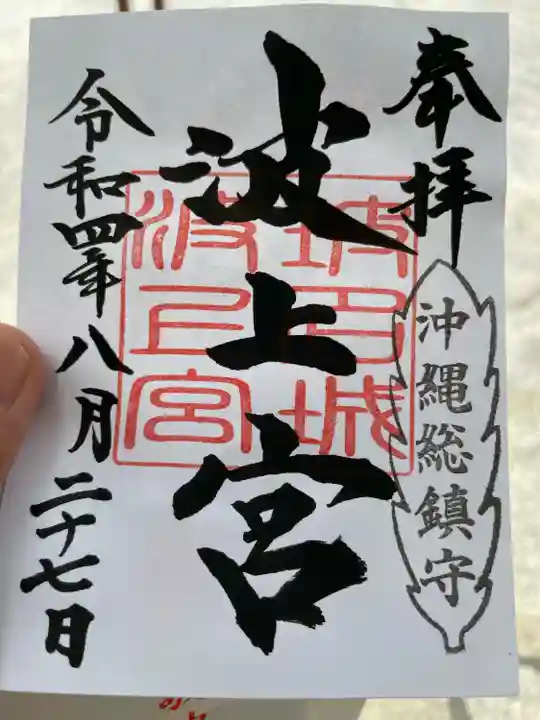 奉拝
沖縄総鎮守
波上宮
坡宮城
波上宮
令和四年八月二十七日